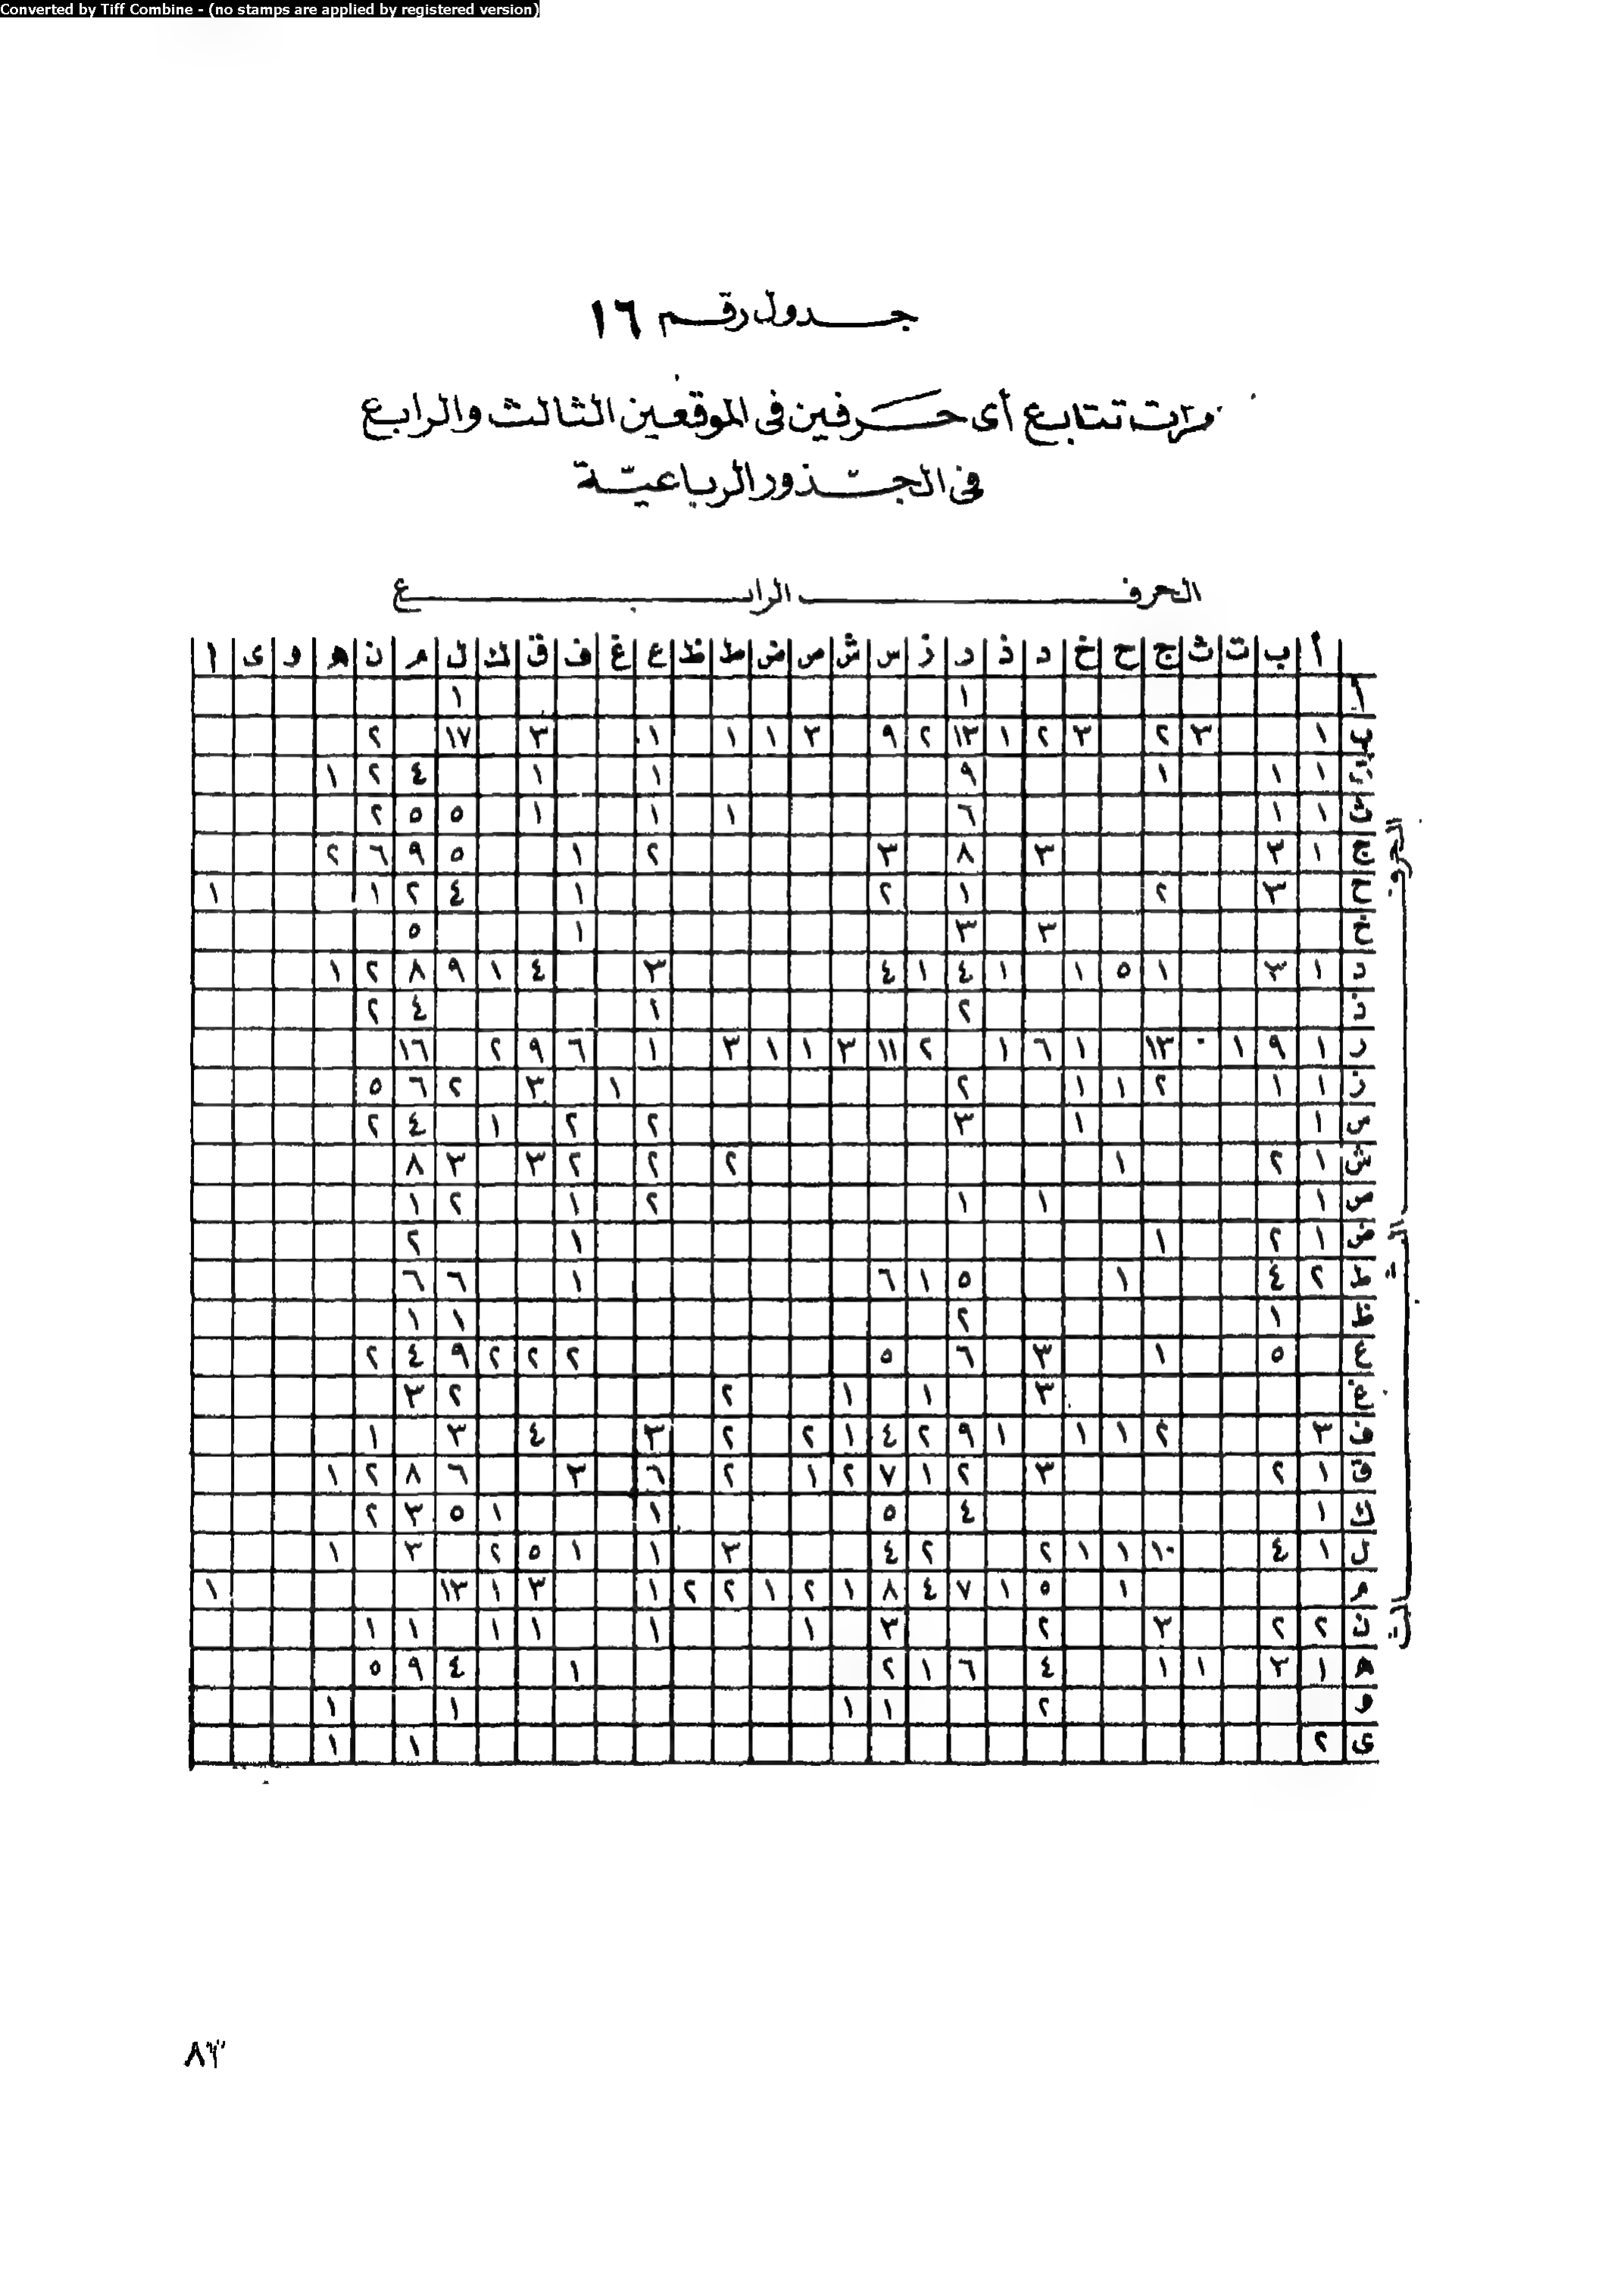 Converted by Tiff Combine - (no stamps are applied by registered version)
جدول رقم ١٦
مرات تتابع أى حرفين فى الموقعين الثالث والرابع
فى الجذور الرباعية
الحرف الرابع
أ ب ت ث ج ح خ د ذ ر ز س ش ص ض ط ظ ع غ ف ق ك ل م ن ه و ى ا
الحرف الثالث
أ ١ ١
ب ١ ٣ ٢ ٣ ٢ ١ ١٣ ٢ ٩ ٣ ١ ١ ١ ٣ ١٧ ٢
ت ١ ١ ١ ٩ ١ ١ ٤ ٢ ١
ث ١ ١ ٦ ١ ١ ١ ٥ ٥ ٢
ج ١ ٣ ٣ ٨ ٣ ٢ ١ ٥ ٩ ٦ ٢
ح ٣ ٢ ١ ٢ ١ ٤ ٢ ١ ١
خ ٣ ٣ ١ ٥
د ١ ٣ ١ ٥ ١ ١ ٤ ١ ٤ ٣ ٤ ١ ٩ ٨ ٢ ١
ذ ٢ ١ ٤ ٢
ر ١ ٩ ١ ٠ ١٣ ١ ٦ ١ ٢ ١١ ٣ ١ ١ ٣ ١ ٦ ٩ ٢ ١٦
ز ١ ١ ٢ ١ ١ ٢ ١ ٣ ٢ ٦ ٥
س ١ ١ ٣ ٢ ٢ ١ ٤ ٢
ش ١ ٢ ١ ٢ ٢ ٢ ٣ ٣ ٨
ص ١ ١ ١ ٢ ١ ٢ ١
ض ١ ٢ ١ ١ ٢
ط ٢ ٤ ١ ٥ ١ ٦ ١ ٦ ٦
ظ ١ ٢ ١ ١
ع ٥ ١ ٣ ٦ ٥ ٢ ٢ ٢ ٩ ٤ ٢
غ ٣ ١ ١ ٢ ٢ ٣
ف ٣ ٢ ١ ١ ١ ٩ ٢ ٤ ١ ٢ ٢ ٣ ٤ ٣ ١
ق ١ ٢ ٣ ٢ ١ ٧ ٢ ١ ٢ ٦ ٣ ٦ ٨ ٢ ١
ك ١ ٤ ٥ ١ ١ ٥ ٣ ٢
ل ١ ٤ ١٠ ١ ١ ٢ ٢ ٤ ٣ ١ ١ ٥ ٢ ٣ ١
م ١ ٥ ١ ٧ ٤ ٨ ١ ٢ ١ ٢ ٢ ١ ٣ ١ ١٣ ١
ن ٢ ٢ ٣ ٢ ٣ ١ ١ ١ ١ ١ ١
ه ١ ٣ ١ ١ ٤ ٦ ١ ٢ ١ ٤ ٩ ٥
و ٢ ١ ١ ١ ١
ى ٢ ١ ١
٨٣